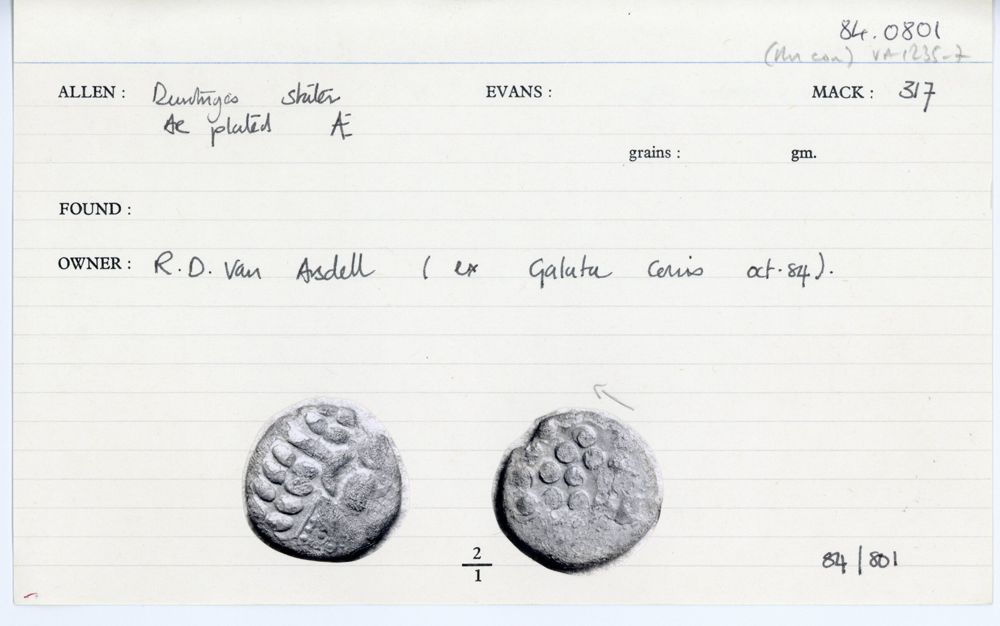 84.0801
(this coin) VA 1235-7
ALLEN : Durotriges stater EVANS : MACK : 317
Æ plated Æ
grains : gm.
FOUND :
OWNER : R.D. Van Arsdell ( ex Galata Coins oct. 84).
2
1
84/801